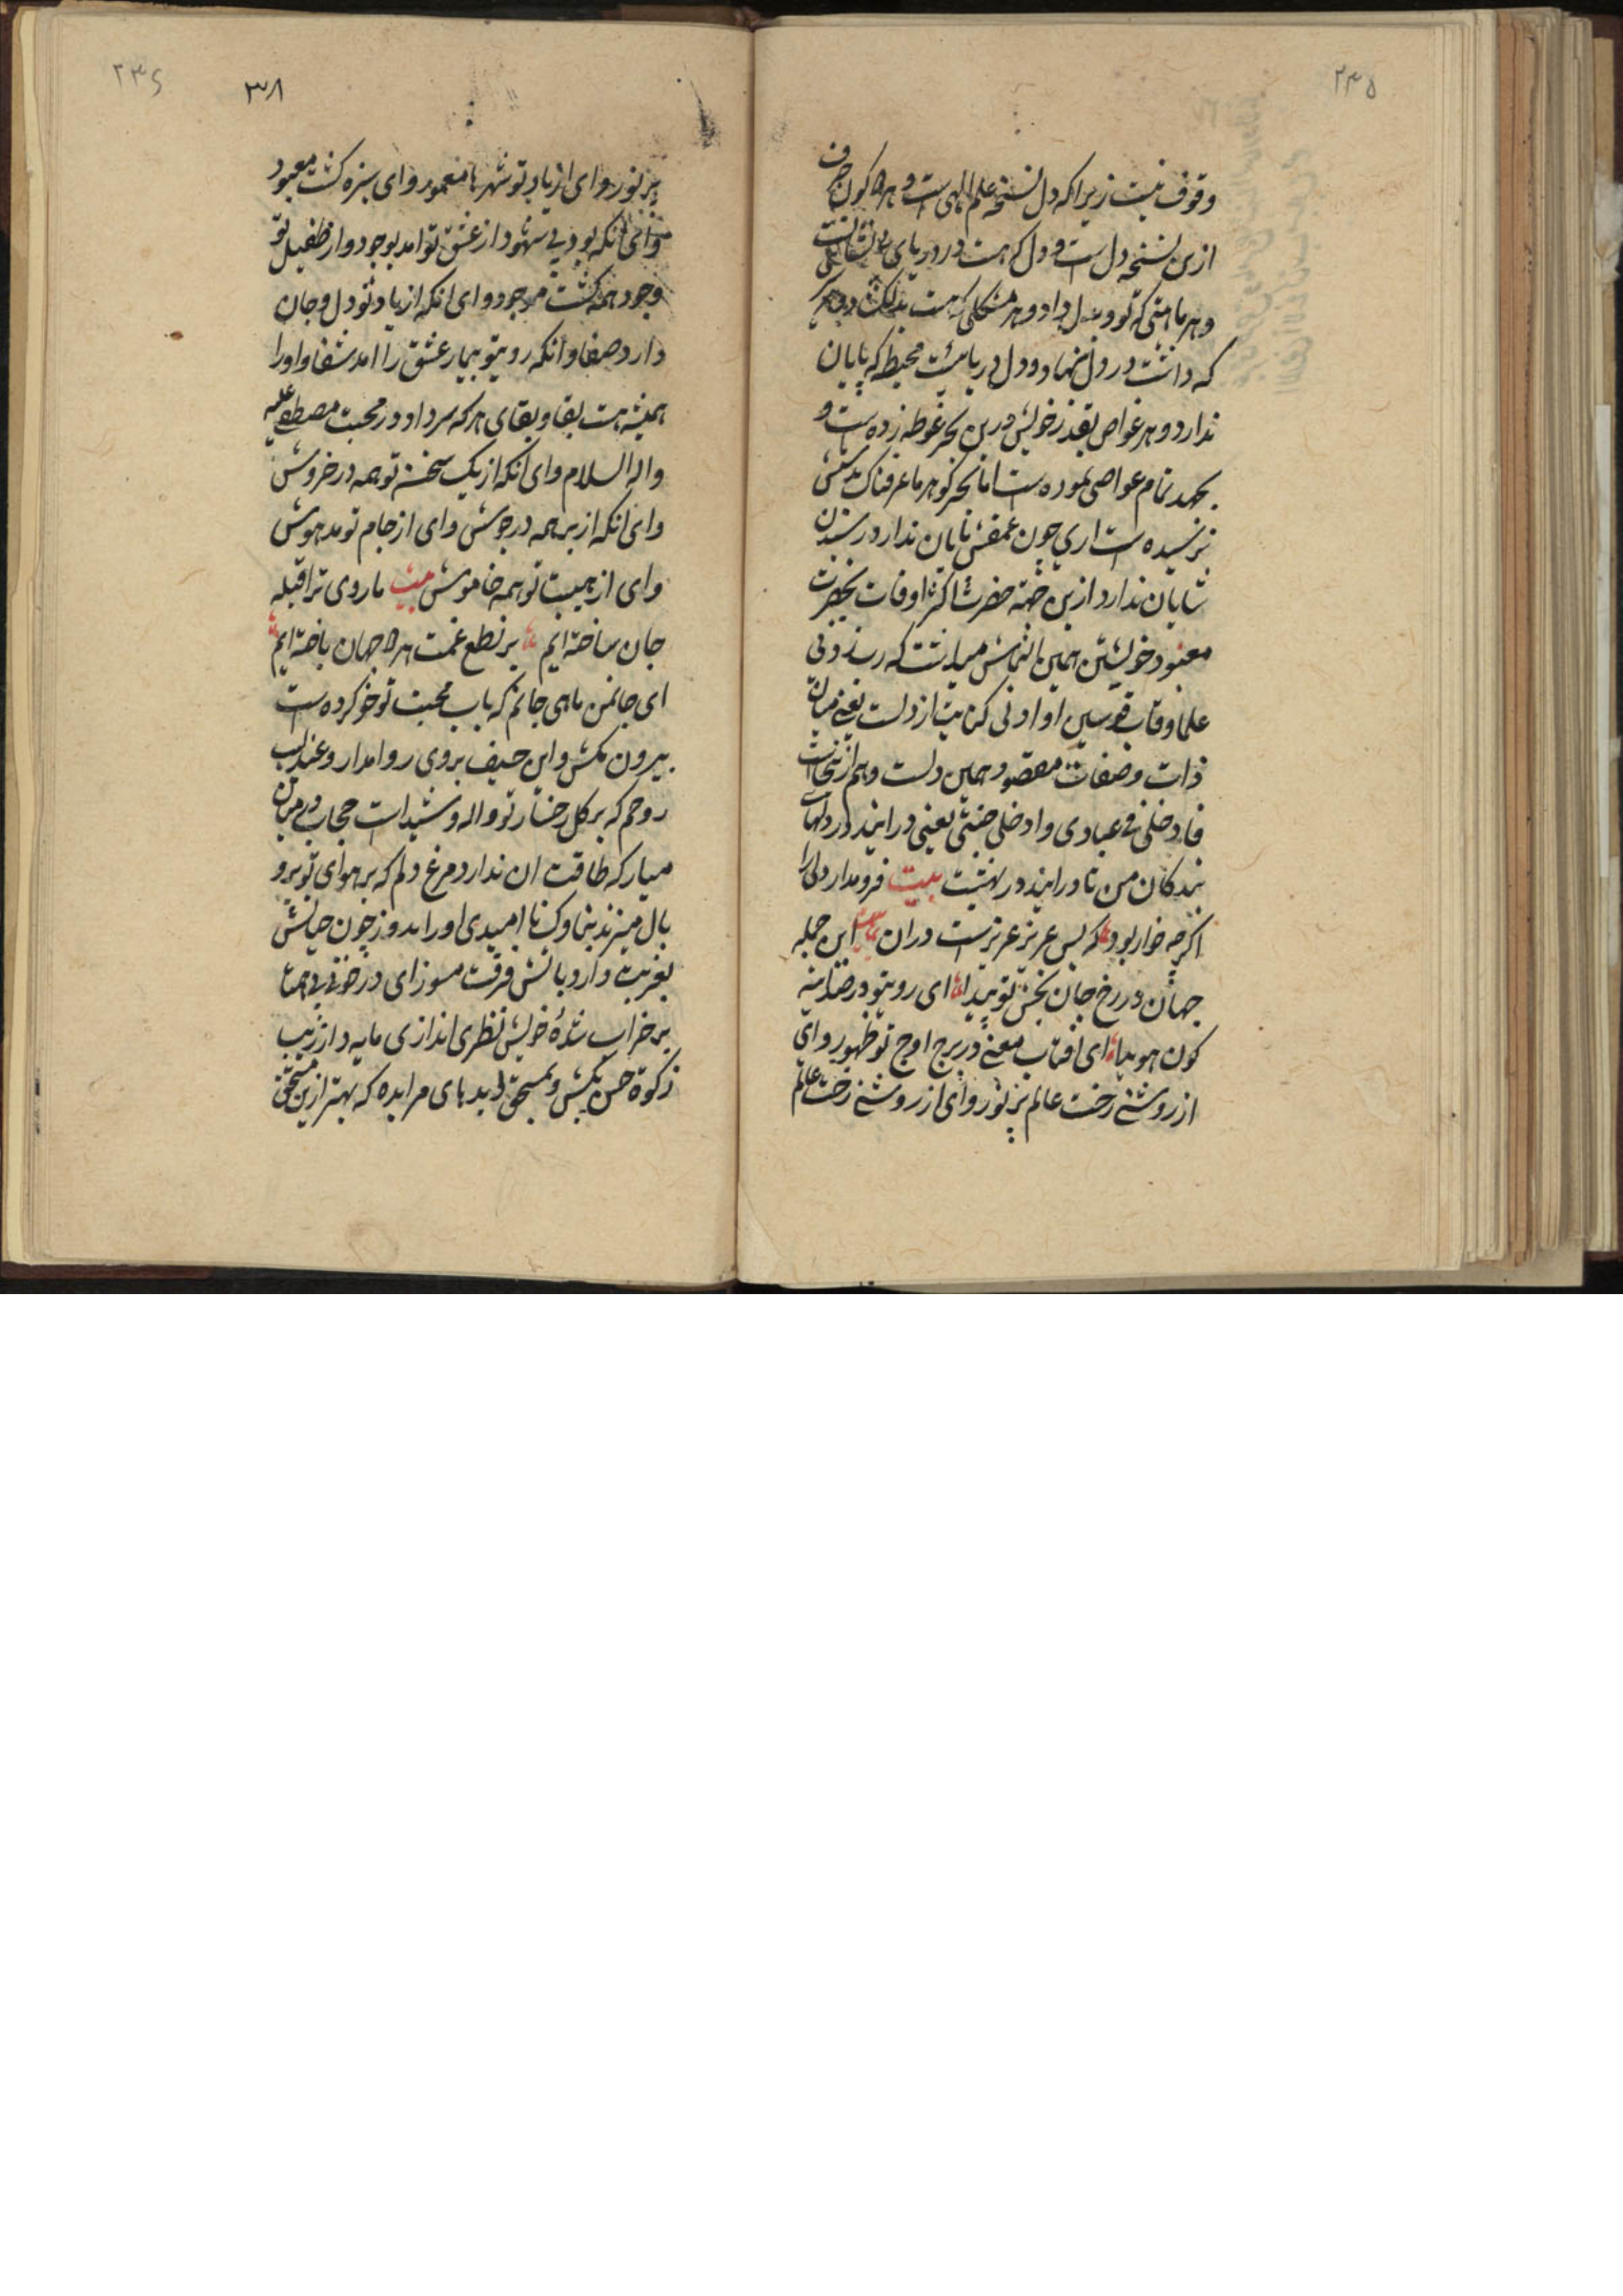 ۲۳۵
وقوف نیست زیرا که دل نسخه علم الهی ست و هر دو کون حرف
ازین نسخه دل ست و دل که هست در دریای
و هر مشکلی که هست
که داشت در دل نهاد و دل دریایست محیط که پایان
ندارد و هر غواص بقدر خویش درین بحر غوطه زده ست و
بجهد تمام غواصی نموده ست اما بحر کوهر ما عرفناک بدستش
نرسیده ست اری چون عمقش پایان ندارد رسیدن
شایان ندارد ازین جهته حضرت اکثر اوقات بحضرت
معبود خویشتن همین التماس میداشت که رب زدنی
علما و قاب قوسین او ادنی کنایت از دلست یعنی میان
ذات و صفات مقصود همین دلست و هم ازینجاست
فادخلی فی عبادی وادخلی جنتی یعنی در ایید در دلهای
بندکان من تا در ایید در بهشت بیت فرو مدار دلی را
اکرچه خوار بود که بس عزیز عزیزست دران این جمله
جهان در رخ جان بخش تو پیدا ای روی تو در اینه
کون هویدا ای افتاب معنی در برج اوج تو ظهور و ای
از روشنی رخت عالم پر نور و ای از روشنی رخت عالم
۲۳۶
۳۸
پر نور و ای از یاد تو شهرها معمور و ای سبزه کشت معبود
و ای انکه بود بی شهود از عشق تو امد بوجود و از طفیل تو
وجود همه کشت موجود و ای انکه از یاد تو دل و جان
دارد صفا و انکه رویتو بیمار عشق را امد شفا و او را
همیشه هست بقا و بقای هر که سر داد در محبت مصطفی علیه
واله السلام و ای انکه از یک سخن تو همه در خروش
و ای انکه از بر همه در جوش و ای از جام تو مدهوش
و ای از هیبت تو همه خاموش بیت ما روی ترا قبله
جان ساخته ایم بر نطع غمت هر دو جهان باخته ایم
ای جانمن ماهی جانم که باب محبت تو خو کرده ست
بیرون مکش و این حیف بروی روا مدار و عندلیب
روحم که بر کل رخسار تو واله و شیدا ست حجاب در میان
میار که طاقت ان ندارد مرغ دلم که بر هوای تو پر و
بال میزند بناوک نا امیدی او را مدوز چون جانش
بغربت دارد باتش فرقت مسوز ای در خوبی بی همتا
بر خراب شدهٔ خویش نظری اندازی مایه دار زیب
زکوة حسن بکش و بمستحق ده که بهتر ازین مستحق